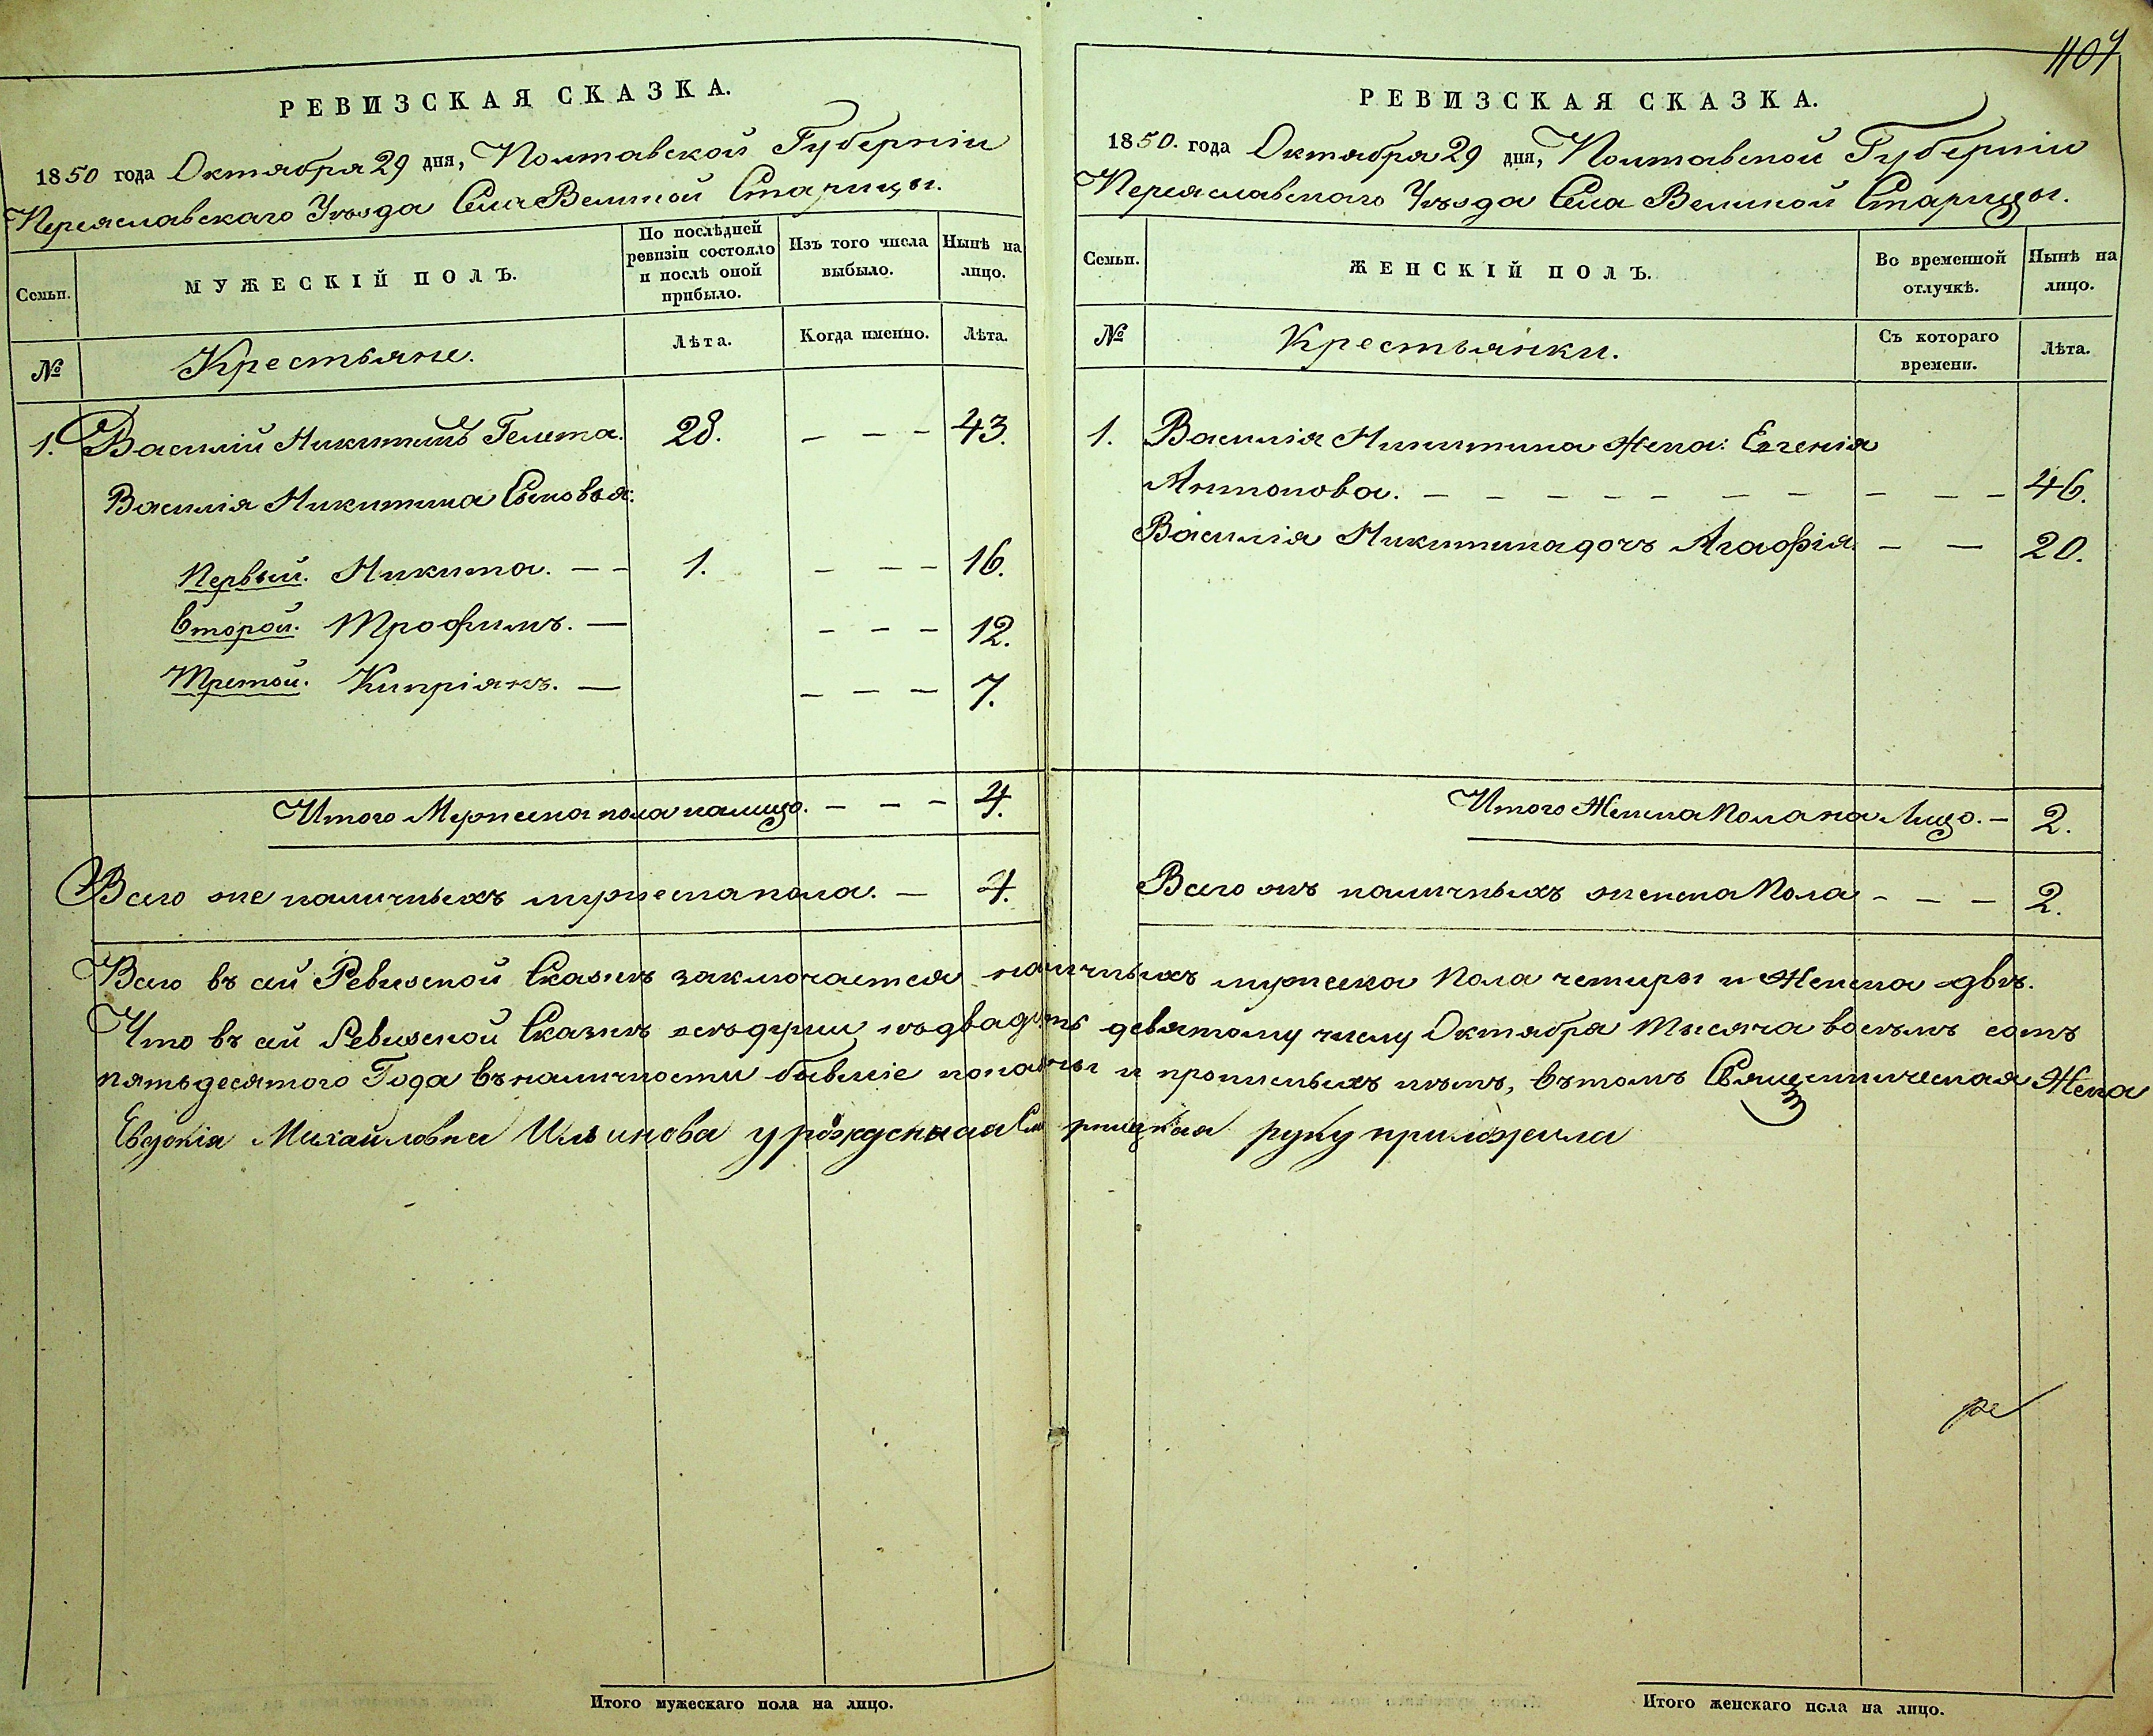 1107
РЕВИЗСКАЯ СКАЗКА.
1850 года Октября 29 дня, Полтавской Губерніи
Переяславскаго Уѣзда Села Великой Старицы.
Семьи.
МУЖЕСКІЙ ПОЛЪ.
По послѣдней ревизіи состояло и послѣ оной прибыло.
Изъ того числа выбыло.
Нынѣ на лицо.
№
Крестьяне.
Лѣта.
Когда именно.
Лѣта.
1. Василій Никитинъ Гелета. 28. – – – 43.
Василія Никитина Сыновья:
Первый. Никита. – – 1. – – – 16.
Второй. Трофимъ. — – – – 12.
Третой. Кипріянъ. — – – – 7.
Итого Мужеска пола налицо. – – – 4.
Всего же наличныхъ мужеска пола. — 4.
РЕВИЗСКАЯ СКАЗКА.
1850. года Октября 29 дня, Полтавской Губерніи
Переяславскаго Уѣзда Села Великой Старицы.
Семьи.
ЖЕНСКІЙ ПОЛЪ.
Во временной отлучкѣ.
Нынѣ на лицо.
№
Крестьянки.
Съ котораго времени.
Лѣта.
1. Василія Никитина Жена: Евгенія
Антонова. – – – – – – – – – – 46.
Василія Никитина дочь Агафія. – — 20.
Итого Женска Пола на Лицо. – 2.
Всего жъ наличныхъ женска Пола – – – 2.
Всего въ сей Ревизской Сказкѣ заключается наличныхъ мужеска Пола четыры и Женска двѣ.
Что въ сей Ревизской Сказкѣ всѣ души къ двадцать девятому числу Октября Тысяча восѣмъ сотъ
пятьдесятого Года въ наличности бывшіе показаны и прописныхъ нѣтъ, вътомъ Священическая Жена
Евдокія Михайловна Ильинова урожденная руку приложила
Итого мужескаго пола на лицо.
Итого женскаго пола на лицо.